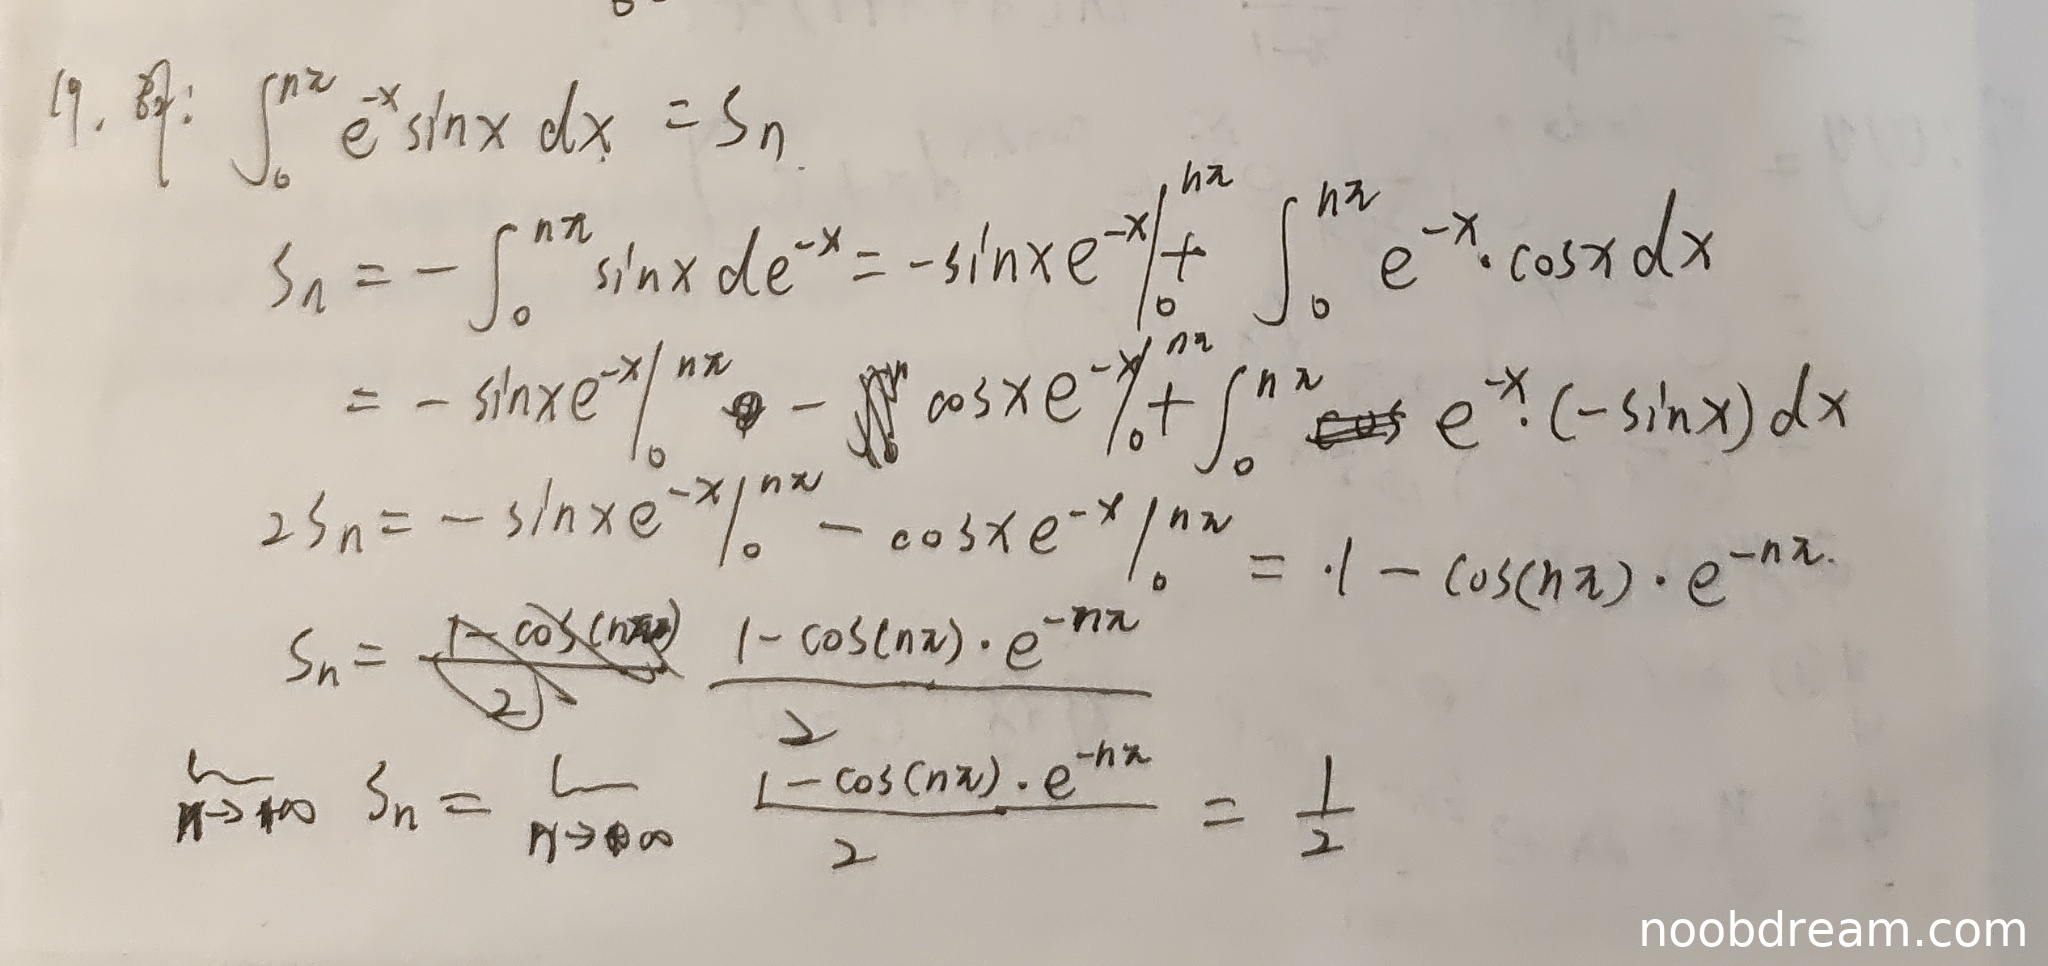 19. 解: ∫₀^{nπ} e^{-x} sinx dx = Sn.
Sn = - ∫₀^{nπ} sinx de^{-x} = -sinx e^{-x} |₀^{nπ} + ∫₀^{nπ} e^{-x}·cosx dx
= - sinx e^{-x} |₀^{nπ} - cosx e^{-x} |₀^{nπ} + ∫₀^{nπ} e^{-x}·(-sinx) dx
2Sn = - sinx e^{-x} |₀^{nπ} - cosx e^{-x} |₀^{nπ} = 1 - cos(nπ)·e^{-nπ}.
Sn = (1 - cos(nπ)·e^{-nπ}) / 2
n→+∞ Sn = n→∞ (1 - cos(nπ)·e^{-nπ}) / 2 = 1/2
noobdream.com